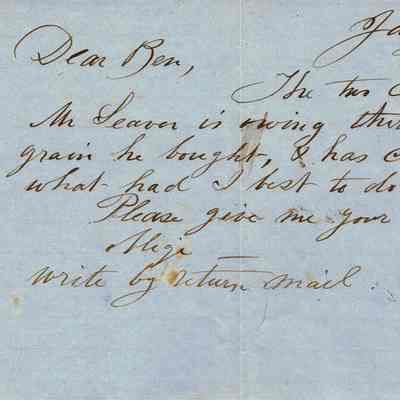 Ja
Dear Ben,
The two
Mr Seaver is owing
grain he bought, & has
what had I best to do
Please give me your
oblige
write by return mail.